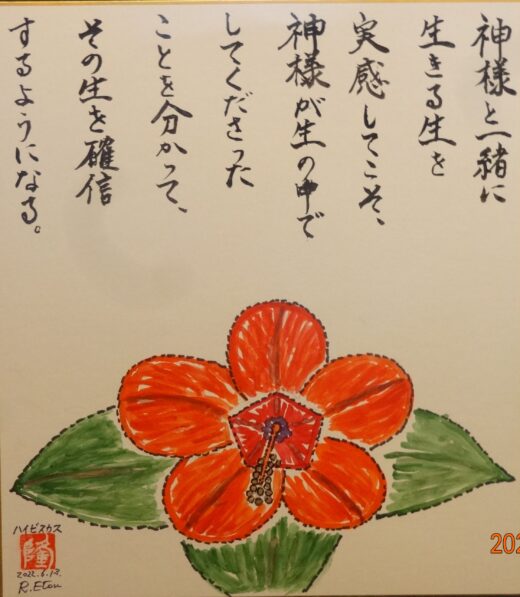 神様と一緒に
生きる生を
実感してこそ、
神様が生の中で
してくださった
ことを分かって、
その生を確信
するようになる。
ハイビスカス
隆
2022.6.13.
R.Etou
202